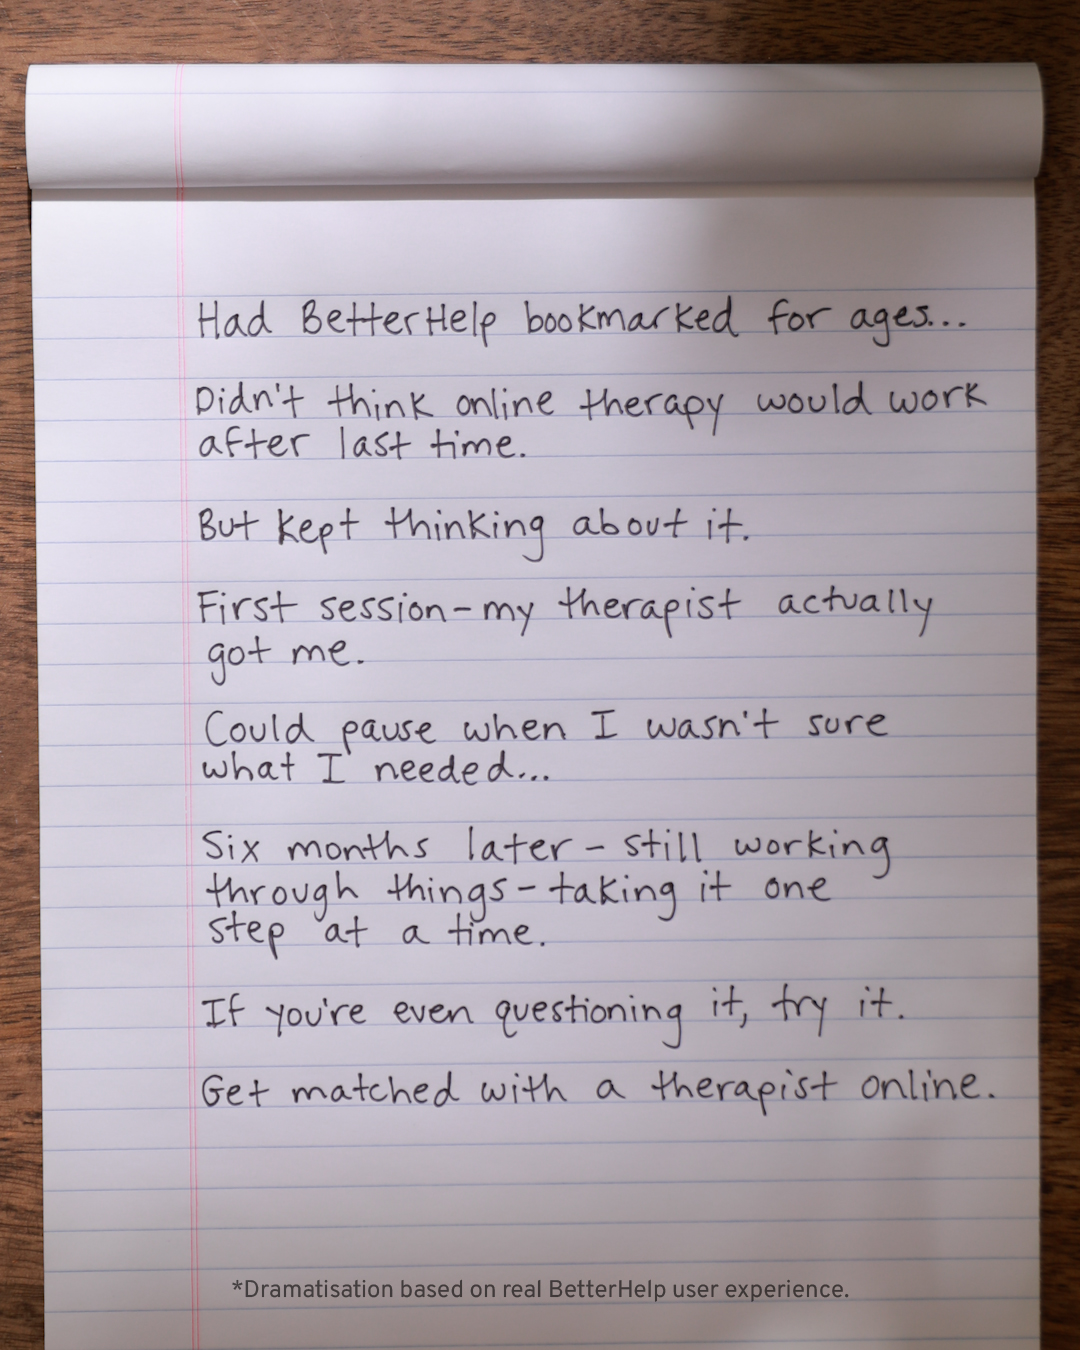 Had BetterHelp bookmarked for ages...
Didn't think online therapy would work
after last time.
But kept thinking about it.
First session - my therapist actually
got me.
Could pause when I wasn't sure
what I needed...
Six months later - still working
through things - taking it one
step at a time.
If you're even questioning it, try it.
Get matched with a therapist online.
*Dramatisation based on real BetterHelp user experience.